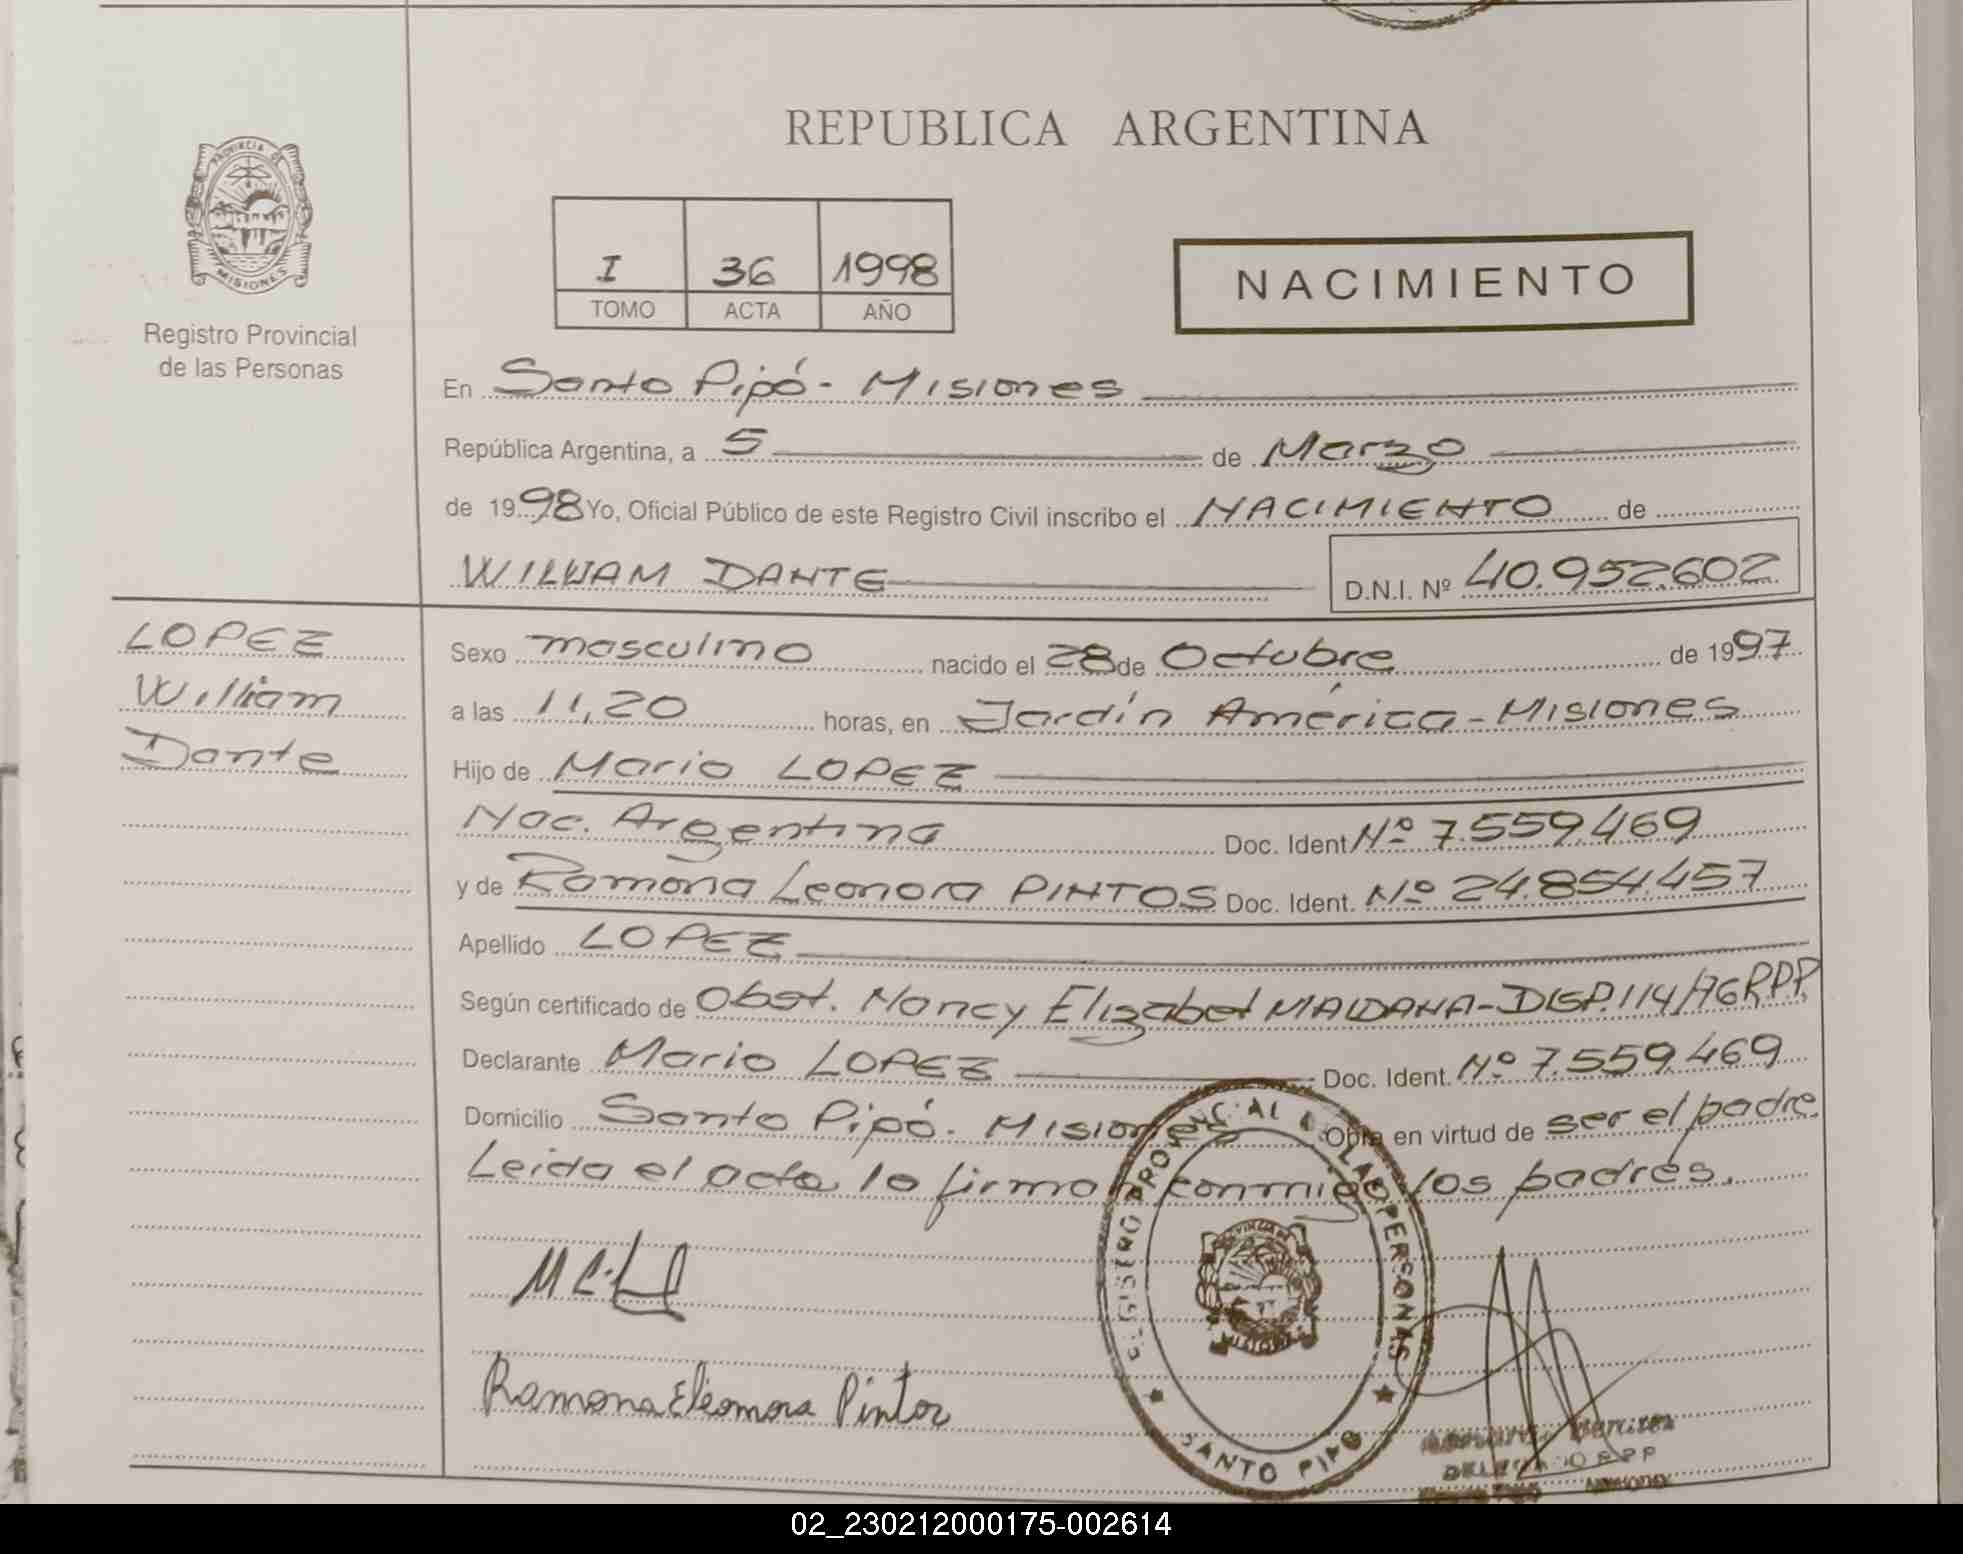 REPUBLICA ARGENTINA
PROVINCIA DE
MISIONES
Registro Provincial
de las Personas
I 36 1998
TOMO ACTA AÑO
NACIMIENTO
En Santo Pipó - Misiones
República Argentina, a 5 de Marzo
de 1998 Yo, Oficial Público de este Registro Civil inscribo el NACIMIENTO de
WILLIAM DANTE D.N.I. Nº 40.952.602
LOPEZ
William
Dante
Sexo masculino nacido el 28 de Octubre de 1997
a las 11,20 horas, en Jardín América - Misiones
Hijo de Mario LOPEZ
Nac. Argentina Doc. Ident Nº 7.559.469
y de Ramona Leonora PINTOS Doc. Ident. Nº 24.854.457
Apellido LOPEZ
Según certificado de Obst. Nancy Elizabet MALDANA - DISP. 114/76 R.P.P.
Declarante Mario LOPEZ Doc. Ident. Nº 7.559.469
Domicilio Santo Pipó - Misiones Obra en virtud de ser el padre.
Leida el acta lo firman conmigo los padres.
Ramona Eleonora Pintos
REGISTRO PROVINCIAL DE LAS PERSONAS
SANTO PIPO
02_230212000175-002614